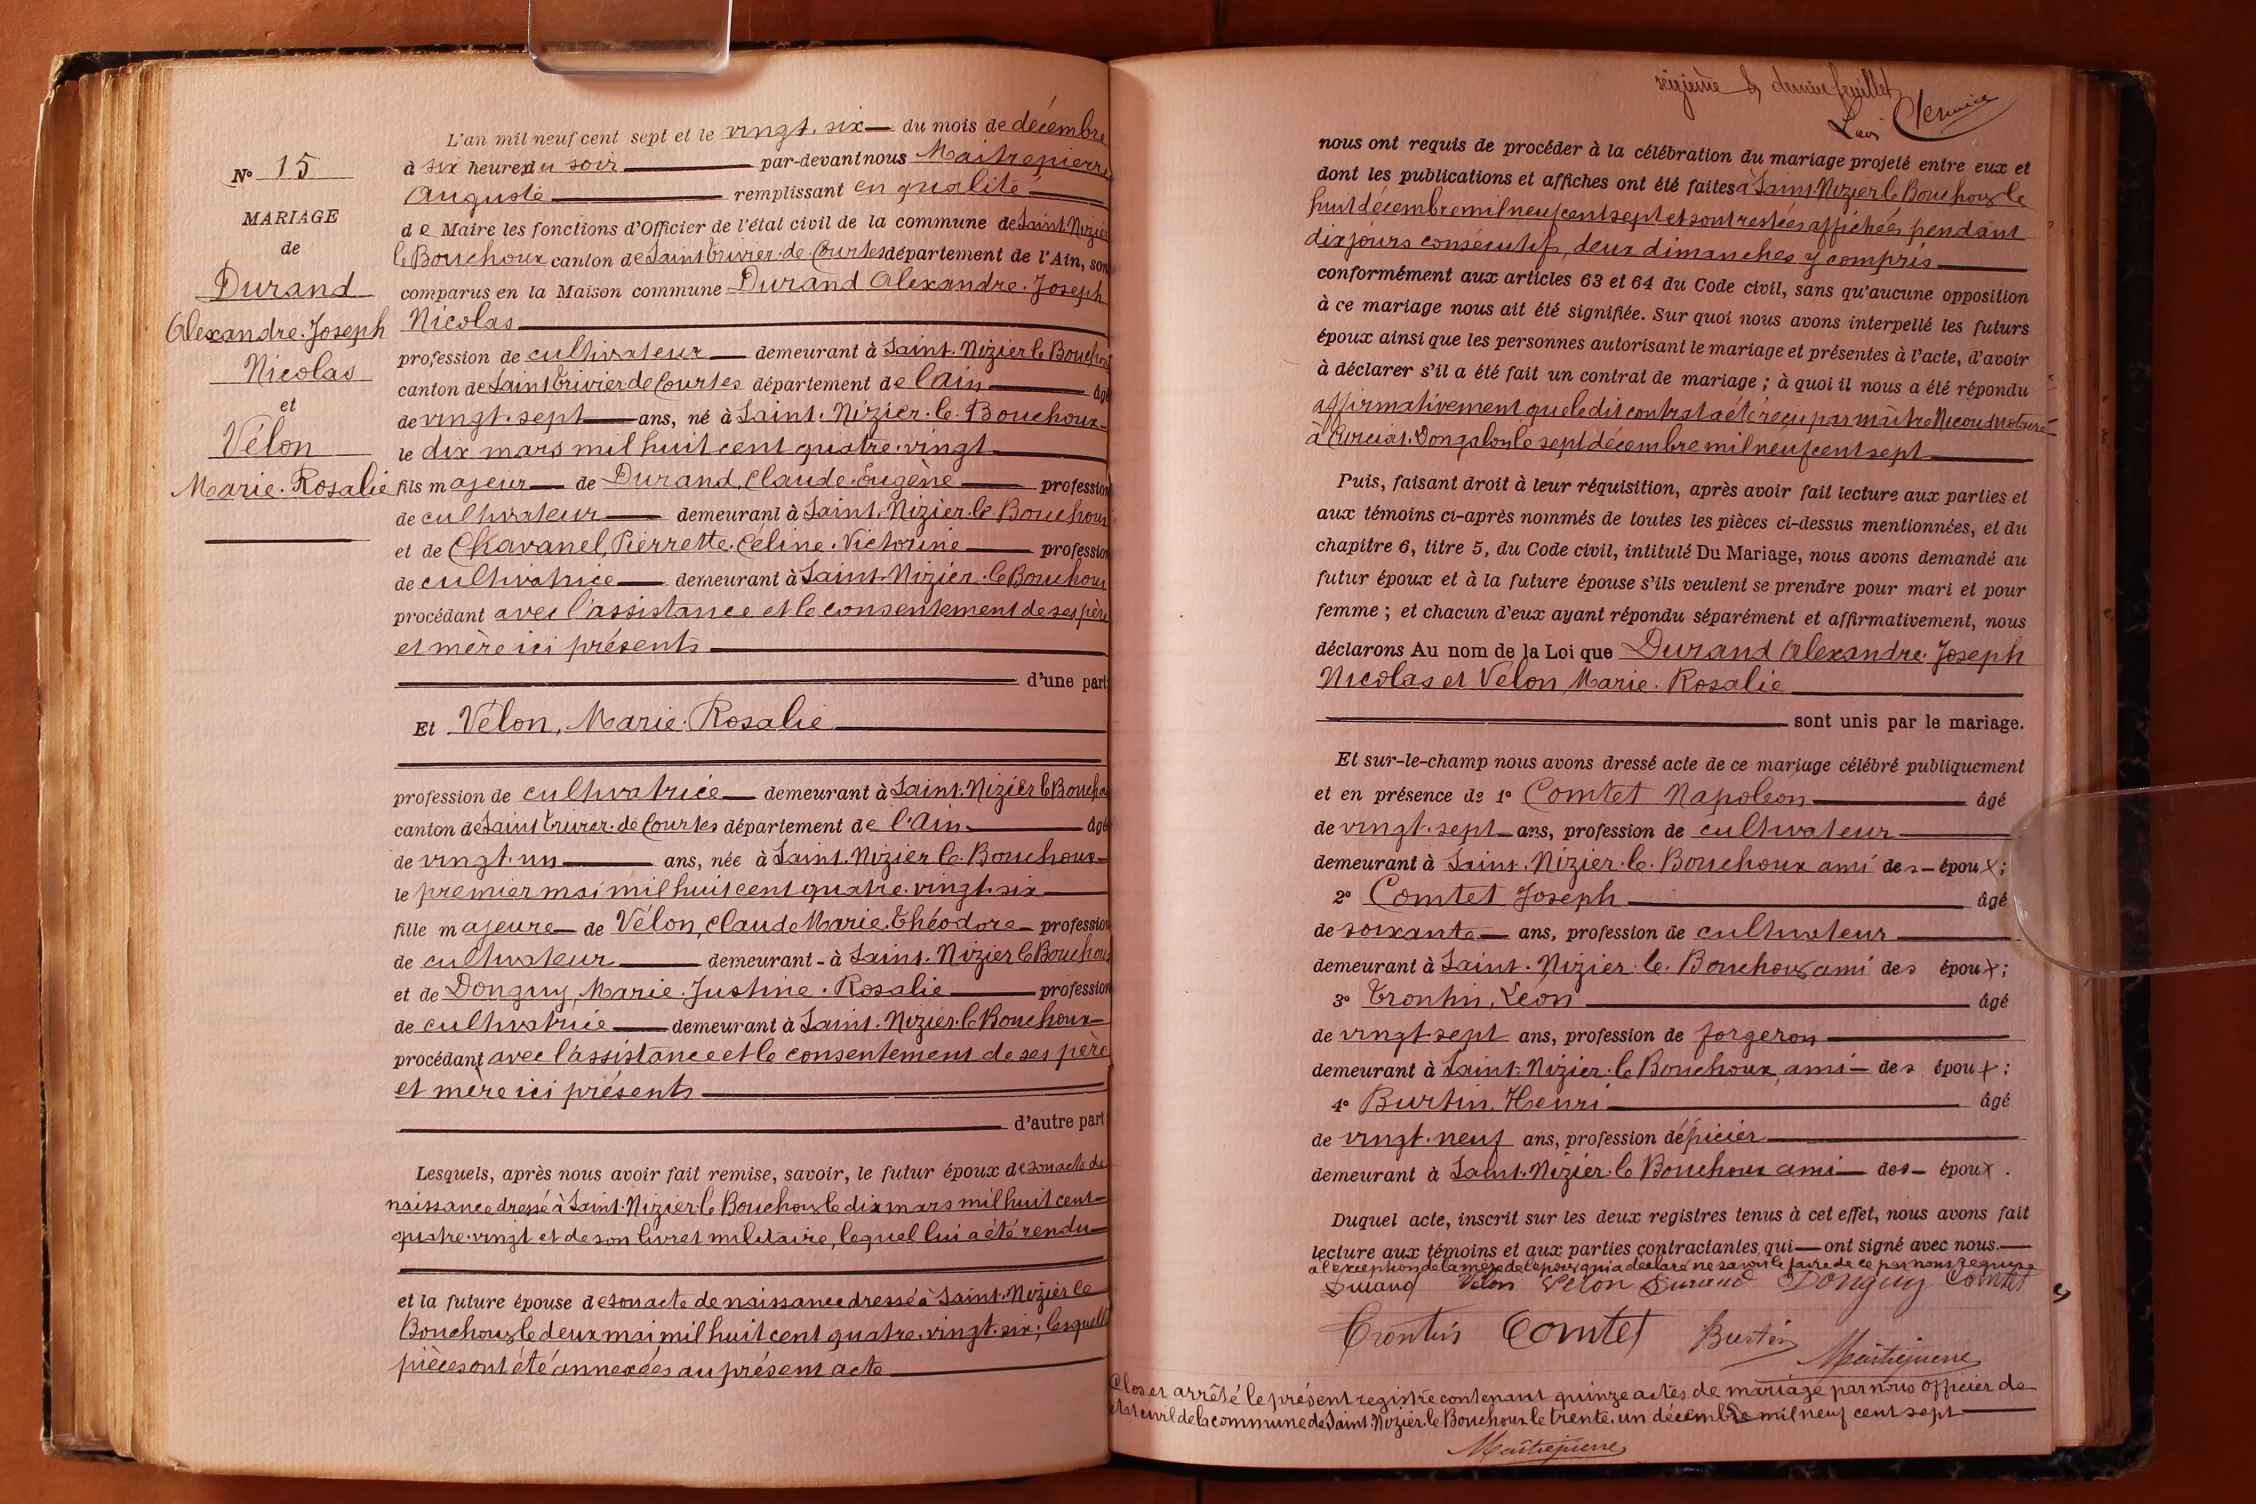 L'an mil neuf cent sept et le vingt-six du mois de décembre
à six heures du soir par-devant nous Maitrepierre
Auguste remplissant en qualité
de Maire les fonctions d'Officier de l'état civil de la commune de Saint-Nizier
le Bouchoux canton de Saint Trivier-de-Courtes département de l'Ain, son
comparus en la Maison commune Durand Alexandre-Joseph
Nicolas
profession de cultivateur demeurant à Saint-Nizier le Bouchoux
canton de Saint Trivier de Courtes département de l'Ain âgé
de vingt-sept ans, né à Saint-Nizier-le-Bouchoux
le dix mars mil huit cent quatre-vingt
fils majeur de Durand, Claude-Eugène profession
de cultivateur demeurant à Saint-Nizier-le Bouchoux
et de Chavanel, Pierrette-Céline-Victorine profession
de cultivatrice demeurant à Saint-Nizier-le Bouchoux
procédant avec l'assistance et le consentement de ses père
et mère ici présents
d'une part
Et Vélon, Marie-Rosalie
profession de cultivatrice demeurant à Saint-Nizier le Bouchoux
canton de Saint Trivier-de Courtes département de l'Ain âgé
de vingt-un ans, née à Saint-Nizier le-Bouchoux
le premier mai mil huit cent quatre-vingt-six
fille majeure de Vélon, Claude Marie-Théodore profession
de cultivateur demeurant à Saint-Nizier le Bouchoux
et de Donguy, Marie-Justine-Rosalie profession
de cultivatrice demeurant à Saint-Nizier-le Bouchoux
procédant avec l'assistance et le consentement de ses père
et mère ici présents
d'autre part
Lesquels, après nous avoir fait remise, savoir, le futur époux de son acte de
naissance dressé à Saint-Nizier-le Bouchoux le dix mars mil huit cent
quatre-vingt et de son livret militaire, lequel lui a été rendu
et la future épouse de son acte de naissance dressé à Saint-Nizier le
Bouchoux le deux mai mil huit cent quatre-vingt-six; lesquelles
pièces ont été annexées au présent acte
N° 15
MARIAGE
de
Durand
Alexandre-Joseph
Nicolas
et
Vélon
Marie-Rosalie
seizième & dernier feuillet
nous ont requis de procéder à la célébration du mariage projeté entre eux et
dont les publications et affiches ont été faites à Saint-Nizier le Bouchoux le
huit décembre mil neuf cent sept et sont restées affichées pendant
dix jours consécutifs, deux dimanches y compris
conformément aux articles 63 et 64 du Code civil, sans qu'aucune opposition
à ce mariage nous ait été signifiée. Sur quoi nous avons interpellé les futurs
époux ainsi que les personnes autorisant le mariage et présentes à l'acte, d'avoir
à déclarer s'il a été fait un contrat de mariage ; à quoi il nous a été répondu
affirmativement que le dit contrat a été reçu par maître Nicoud notaire
à Curciat-Dongalon le sept décembre mil neuf cent sept
Puis, faisant droit à leur réquisition, après avoir fait lecture aux parties et
aux témoins ci-après nommés de toutes les pièces ci-dessus mentionnées, et du
chapitre 6, titre 5, du Code civil, intitulé Du Mariage, nous avons demandé au
futur époux et à la future épouse s'ils veulent se prendre pour mari et pour
femme ; et chacun d'eux ayant répondu séparément et affirmativement, nous
déclarons Au nom de la Loi que Durand Alexandre-Joseph
Nicolas et Vélon, Marie-Rosalie
sont unis par le mariage.
Et sur-le-champ nous avons dressé acte de ce mariage célébré publiquement
et en présence de 1° Comtet Napoléon âgé
de vingt-sept ans, profession de cultivateur
demeurant à Saint-Nizier-le-Bouchoux ami des époux;
2° Comtet Joseph âgé
de soixante ans, profession de cultivateur
demeurant à Saint-Nizier-le-Bouchoux ami des époux;
3° Trontin, Léon âgé
de vingt-sept ans, profession de forgeron
demeurant à Saint-Nizier-le Bouchoux, ami des époux;
4° Burtin, Henri âgé
de vingt-neuf ans, profession d'épicier
demeurant à Saint-Nizier-le Bouchoux ami des époux.
Duquel acte, inscrit sur les deux registres tenus à cet effet, nous avons fait
lecture aux témoins et aux parties contractantes, qui ont signé avec nous.
à l'exception de la mère de l'époux qui a déclaré ne savoir le faire de ce par nous requise
Durand Vélon Vélon Durand Donguy Comtet
Trontin Comtet Burtin
Maitrepierre
Clos et arrêté le présent registre contenant quinze actes de mariage par nous officier de
l'état civil de la commune de Saint-Nizier-le Bouchoux le trente-un décembre mil neuf cent sept
Maitrepierre